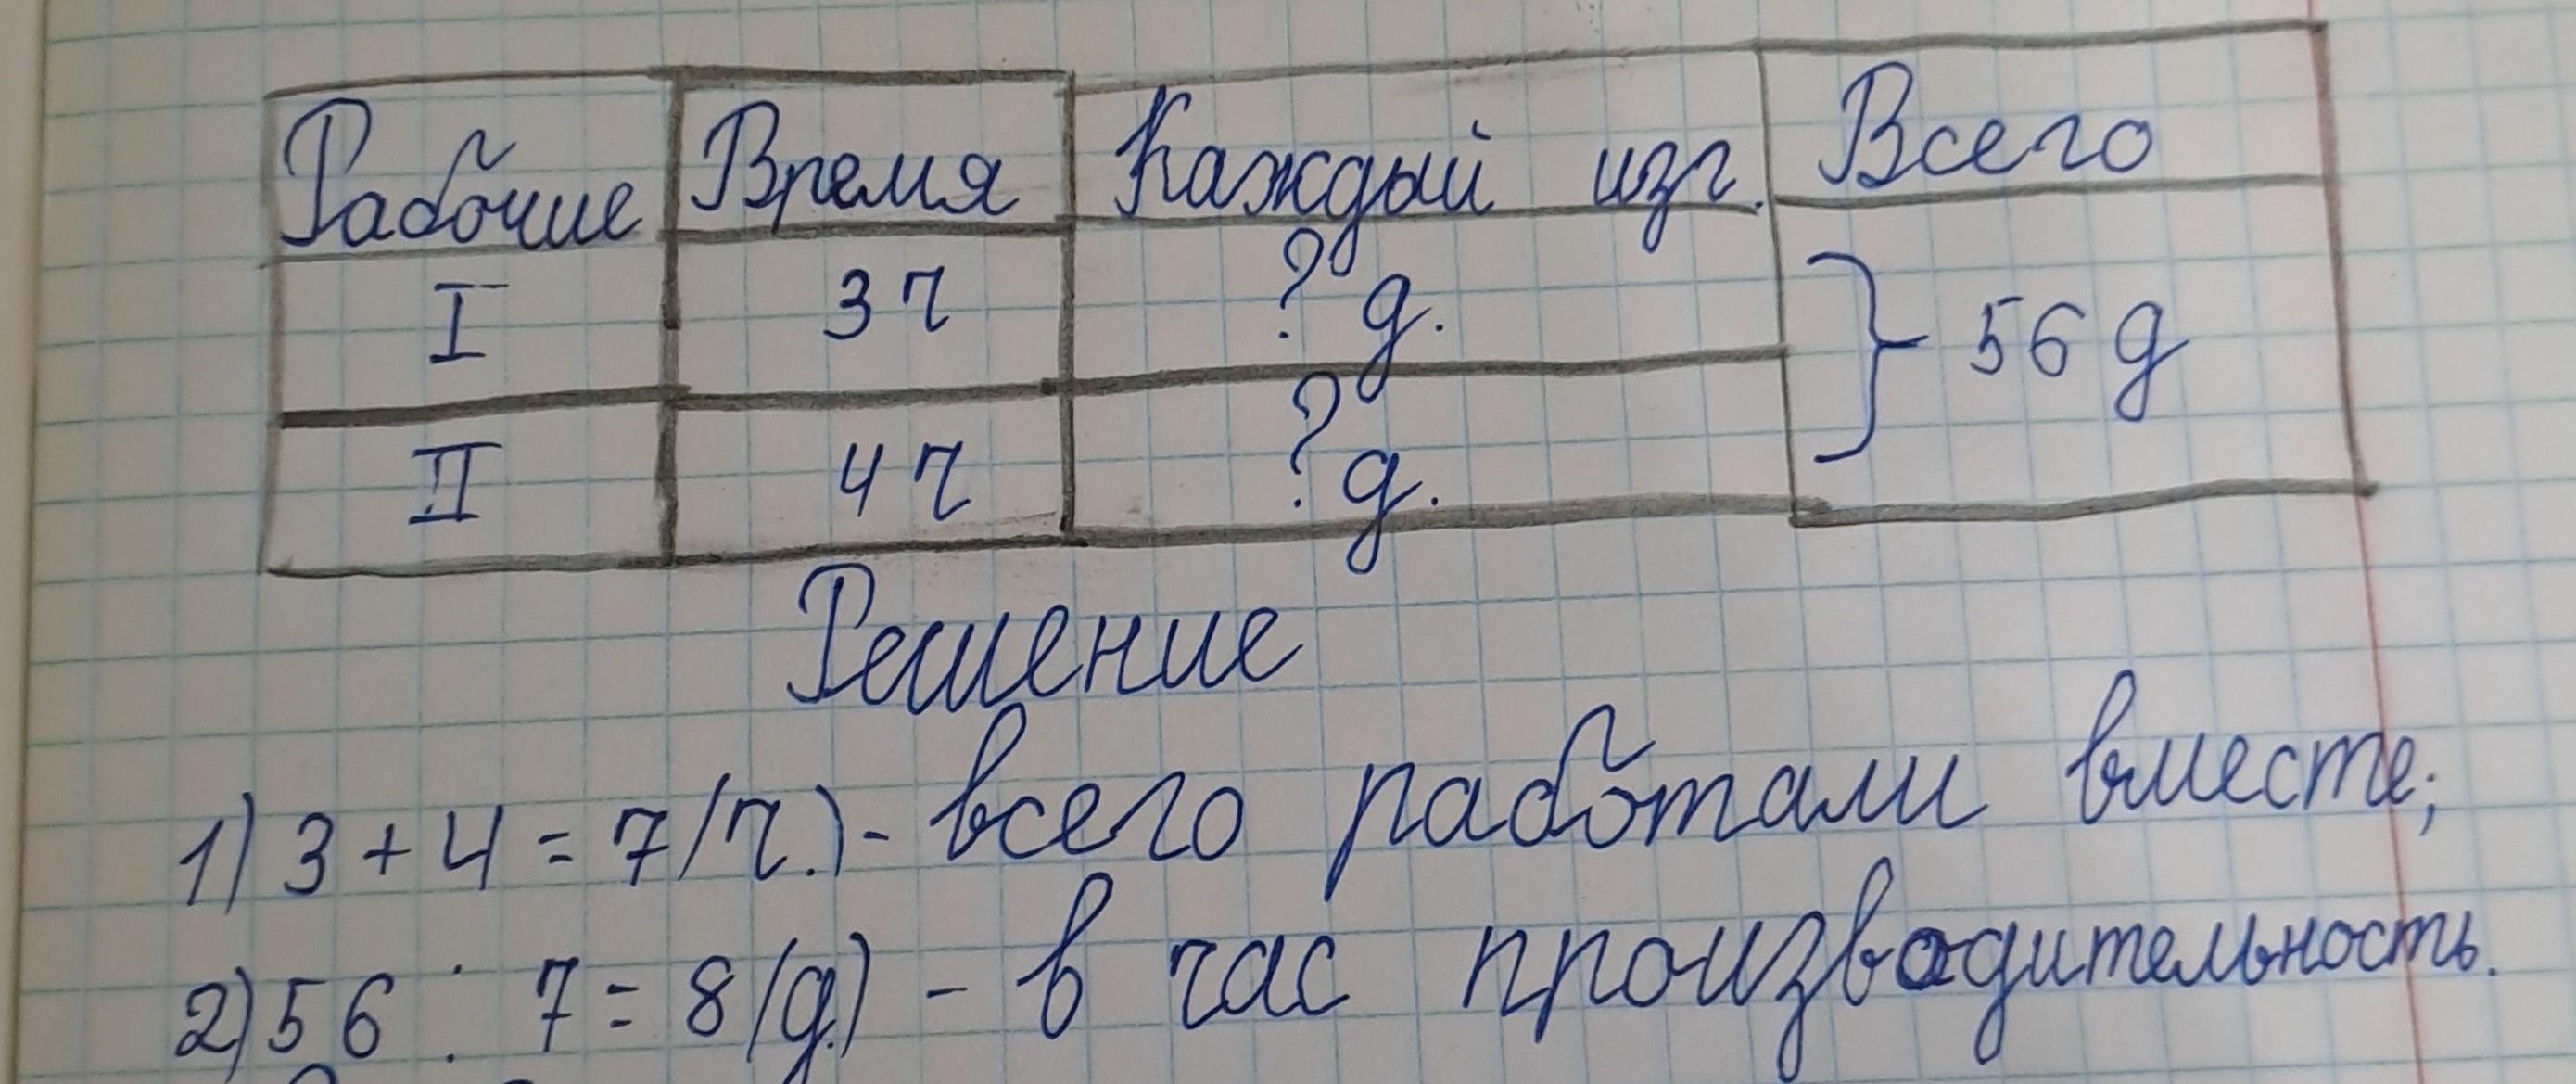 Рабочие Время Каждый изг. Всего
I 3 ч ? д.
} 56 д
II 4 ч ? д.
Решение
1) 3 + 4 = 7 (ч.) - всего работали вместе;
2) 56 : 7 = 8 (д.) - в час производительность.